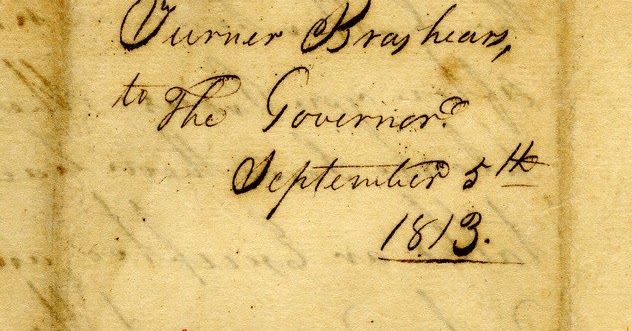 Turner Brashears,
to The Governor.
September 5th
1813.